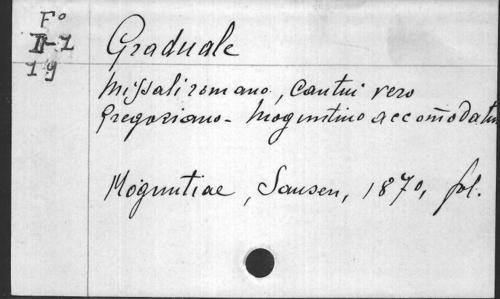 F°
II-1
19
Graduale
Missali romano, cantui vero
Gregoriano-Moguntino accom̄odatum
Moguntiae, Sausen, 1870, fol.